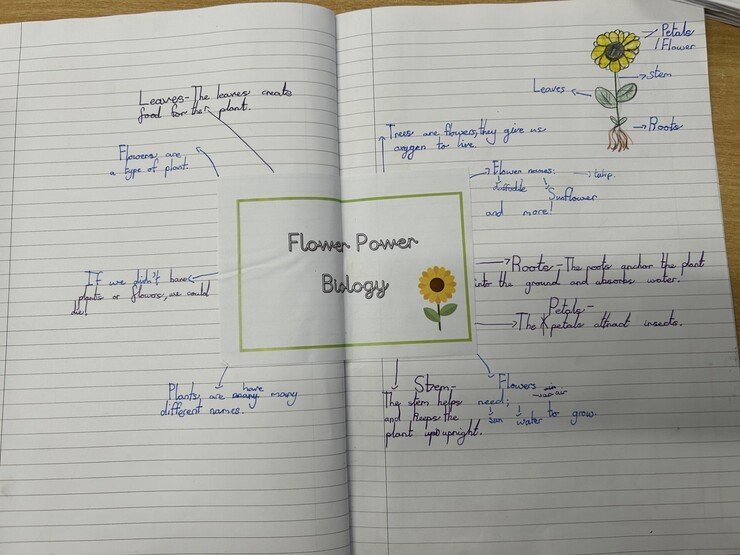 Leaves - The leaves create
food for the plant.
Flowers are
a type of plant.
If we didn't have
plants or flowers, we could
die!
Plants are many have many
different names.
Flower Power
Biology
Petals
/ Flower
stem
Leaves
Roots
Trees are flowers, they give us
oxygen to live.
Flower names:
tulip.
daffodile
Sunflower
and more!
Roots - The roots anchor the plant
into the ground and absorbs water.
Petals -
The petals attract insects.
Stem -
The stem helps
and keeps the
plant up upright.
Flowers
need;
air
sun water to grow.